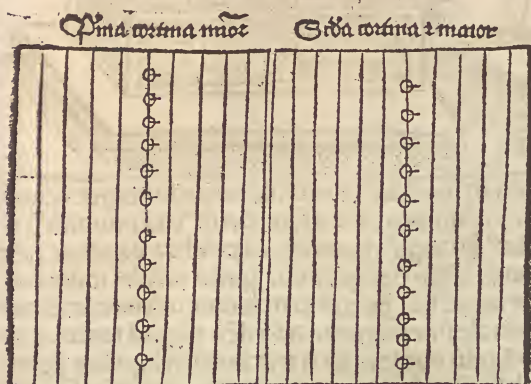 Pma cortina miōr Scđa cortina ⁊ maior